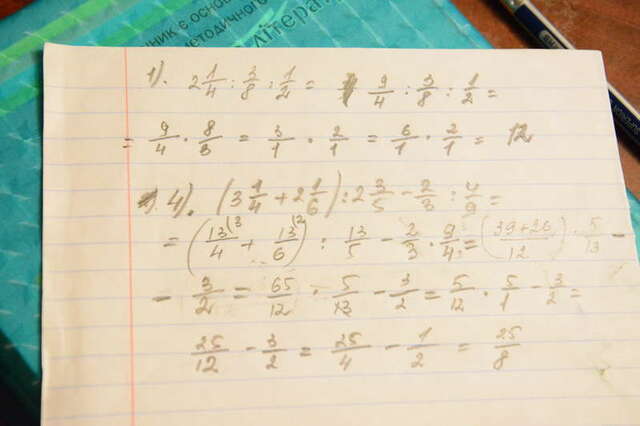 ник є основ
методичного
літерат
1). 2 1/4 : 3/8 : 1/2 = 9/4 : 3/8 : 1/2 =
= 9/4 · 8/3 = 3/1 · 2/1 = 6/1 · 2/1 = 12
4). (3 1/4 + 2 1/6) : 2 3/5 - 2/3 : 4/9 =
= (13/4 (3 + 13/6 (2) : 13/5 - 2/3 · 9/4 = (39+26/12) · 5/13 -
- 3/2 = 65/12 · 5/13 - 3/2 = 5/12 · 5/1 - 3/2 =
25/12 - 3/2 = 25/4 - 1/2 = 25/8